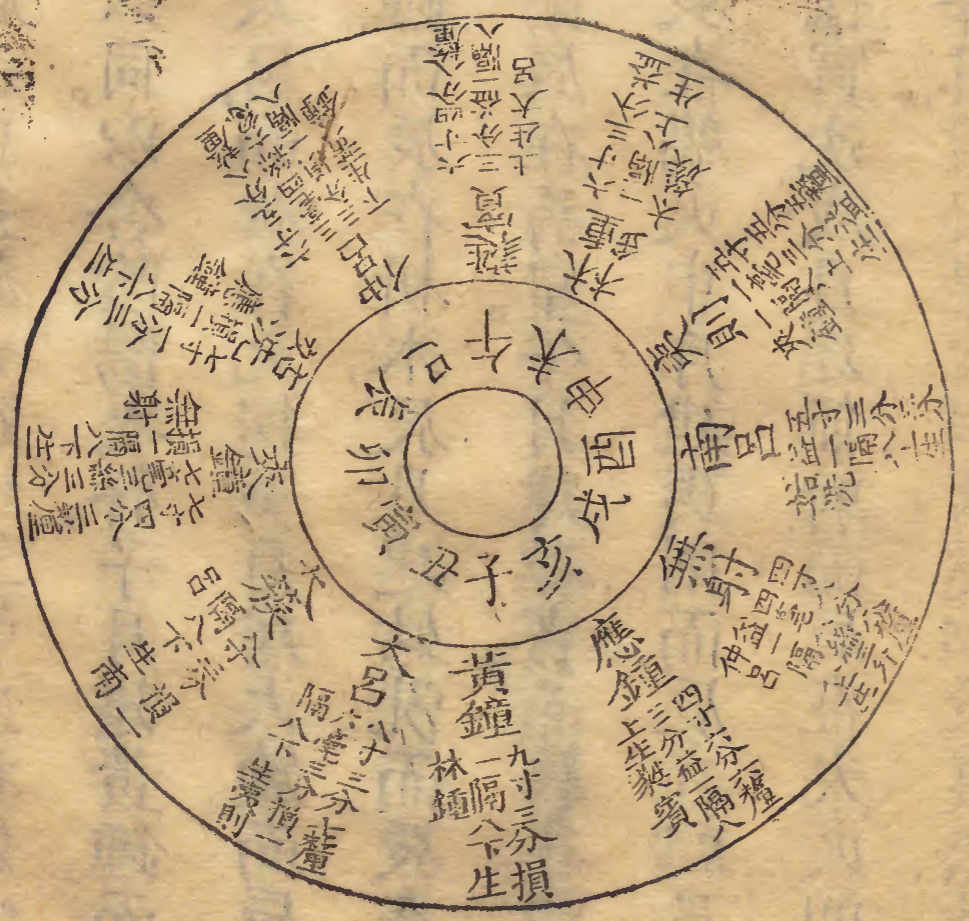 子
丑
寅
卯
辰
巳
午
未
申
酉
戌
亥
黃鐘
九寸三分損
一隔八下生
林鍾
大呂
寸三分七釐
六毫三分損一
隔八下生夷則
太簇
寸三分損一
隔八下生南
呂
夾鐘
七寸四分三釐
七毫三絲三分
損一隔八下生
無射
姑洗
七寸一分三分
損一隔八下生
應鐘
仲呂
蕤賓
六寸四分八釐
三分益一隔八
上生大呂
林鐘
六寸三分益
一隔八上生
太簇
夷則
五寸五分五釐
一毫三分益
一隔八上生
夾鐘
南呂
五寸三分三分
益一隔八上生
姑洗
無射
四寸八分八釐
四毫八絲三分
益一隔八上生
仲呂
應鐘
四寸六分六釐
三分益一隔八
上生蕤賓